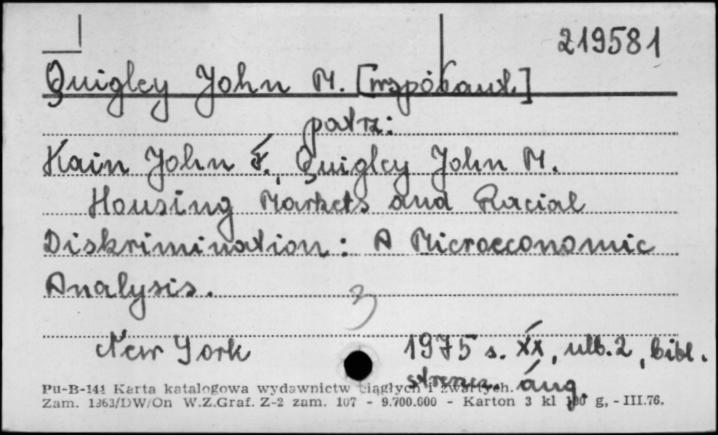 219581
Quigley John M. [współaut.]
patrz:
Kain John F., Quigley John M.
Housing Markets and Racial
Diskrimination: A Microeconomic
Analysis.
3
New York 1975 s. XX, nlb. 2, bibl.
streszcz. áng.
Pu-B-141 Karta katalogowa wydawnictw ciągłych i zwartych.
Zam. 1363/DW/On W.Z.Graf. Z-2 zam. 107 - 9.700.000 - Karton 3 kl g, - III.76.